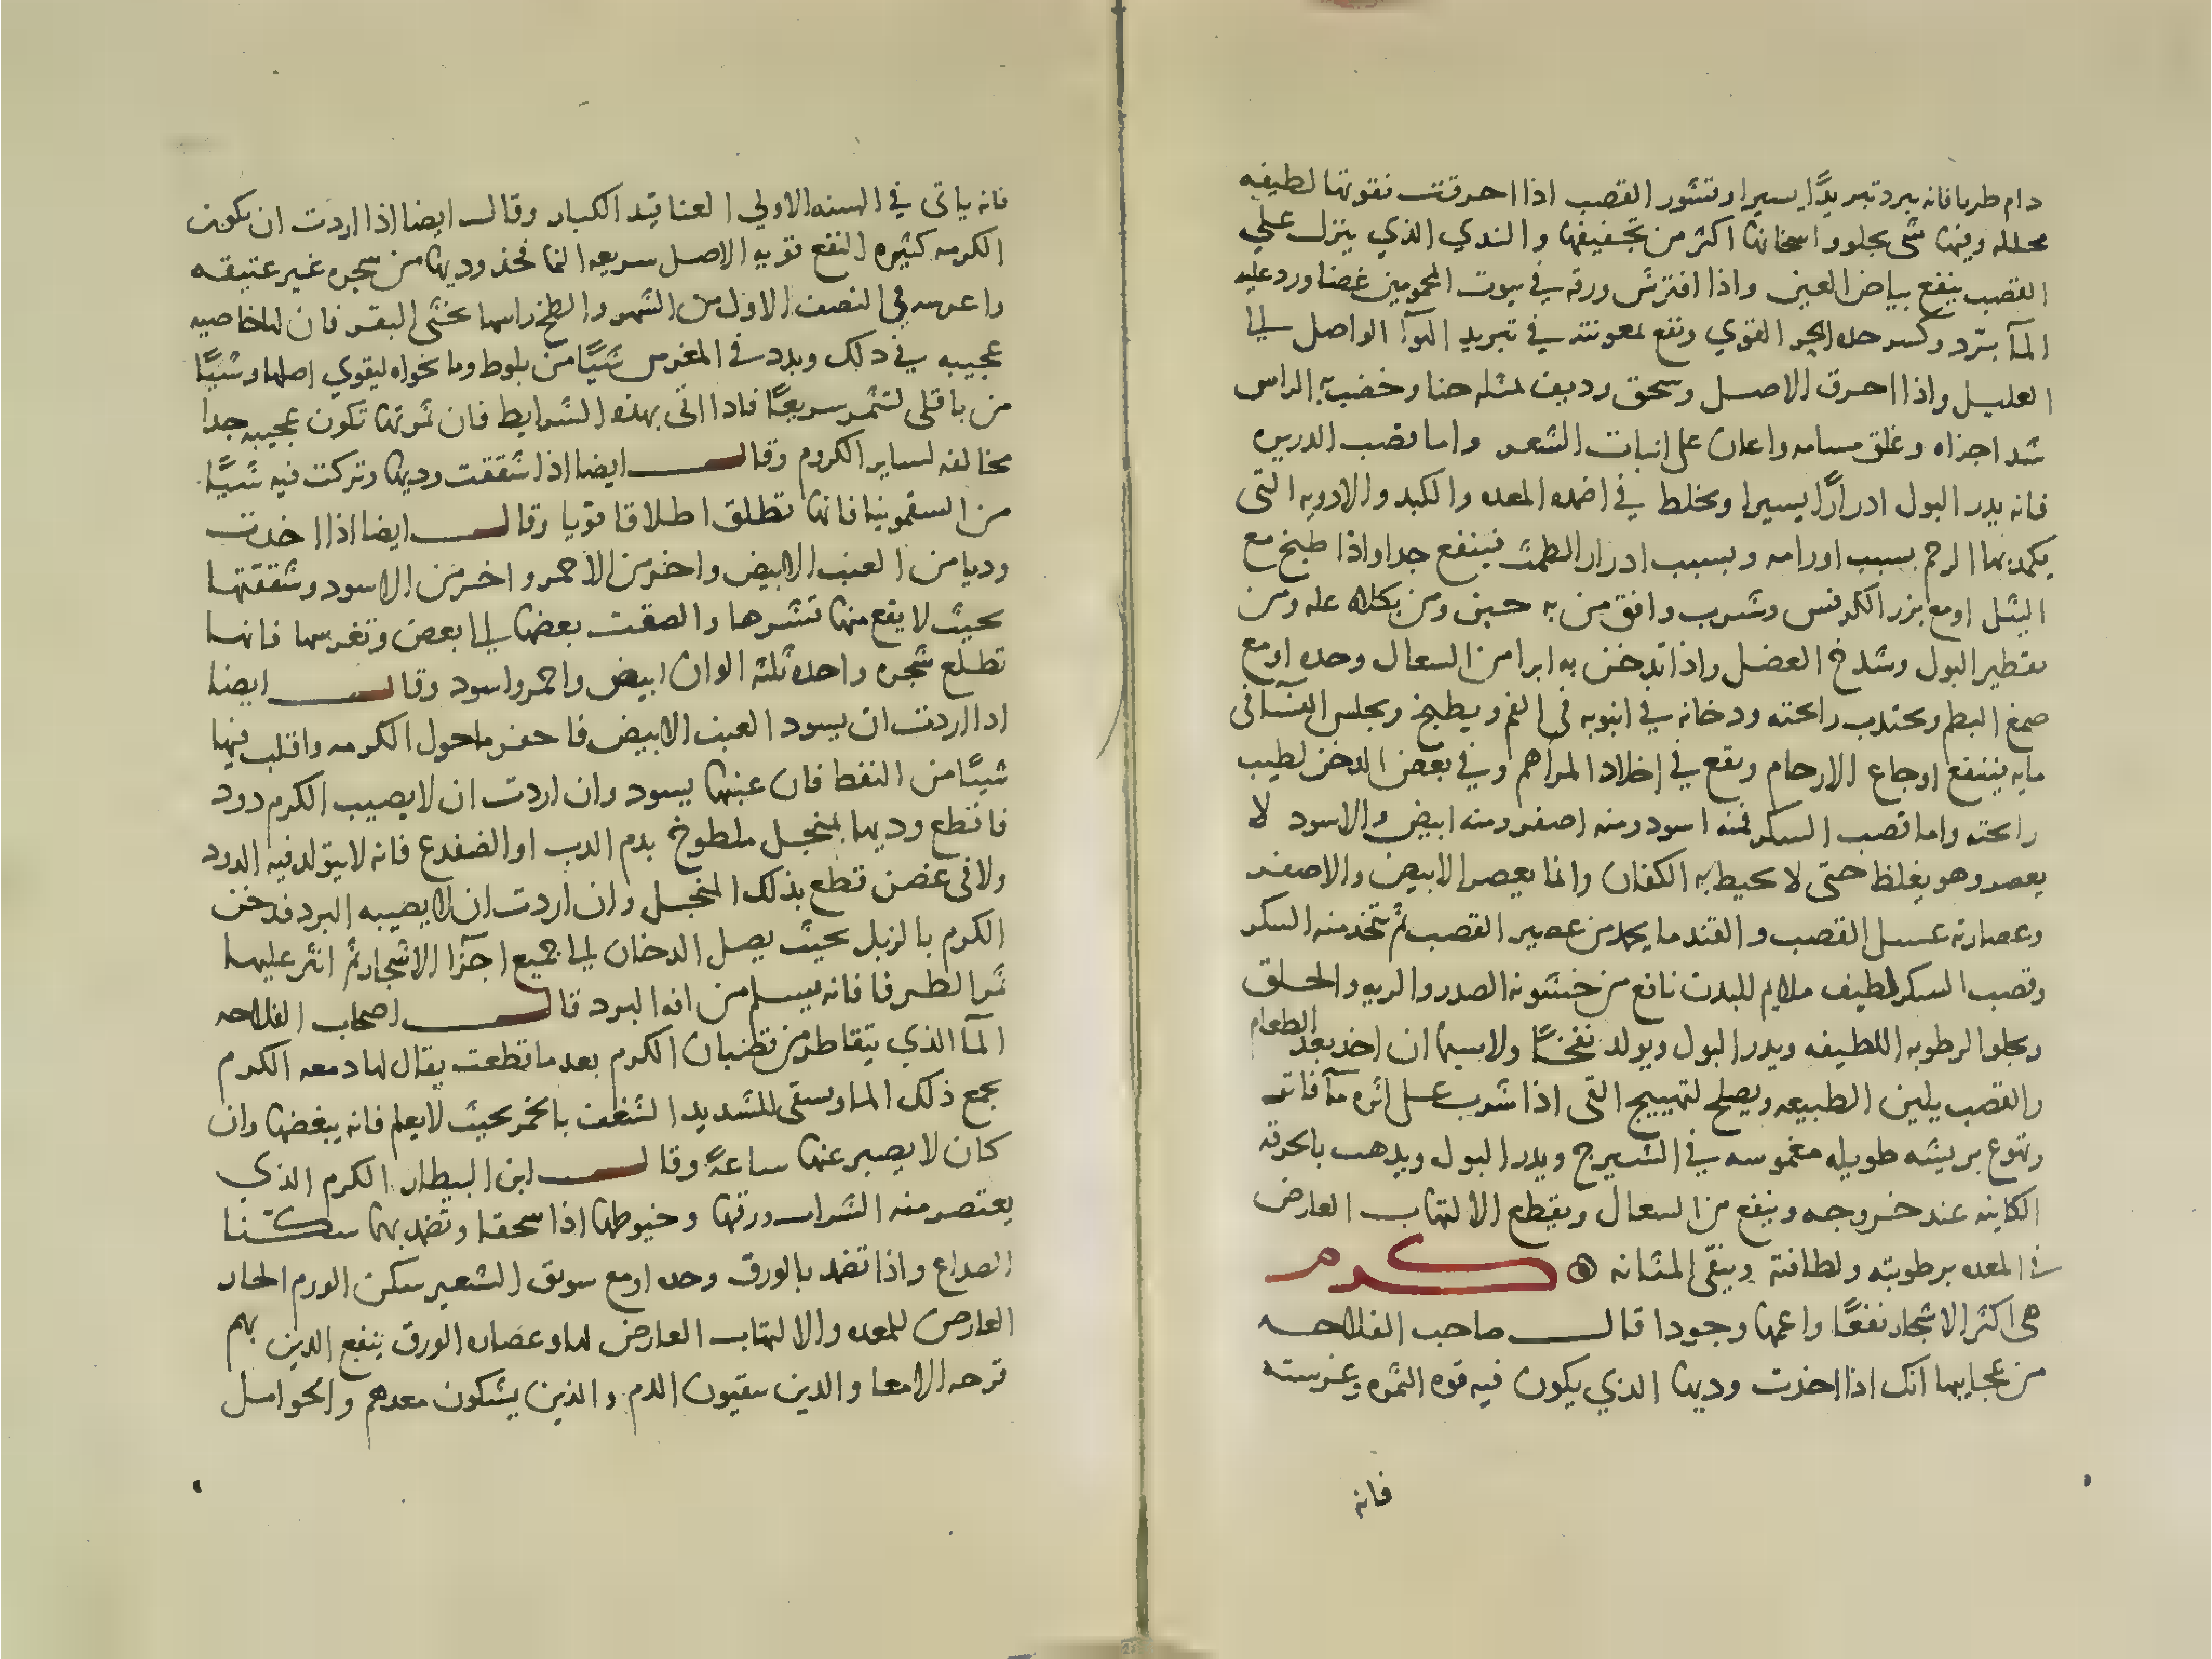 دام طريا فانه يبرد تبريدًا يسيرا وقشور القصب اذا احرقت فقوتها لطيفه
محلله وفيها شى يجلوو اسخانها اكثر من تجفيفها و الندي الذي ينزل علي
القصب ينفع بياض العين واذا افترش ورقه في بيوت المحمومين غضا ورد عليه
المآ برّد وكسر حده الحر القوي ونفع لمعونته في تبريد الهوآ الواصل الي
العليل واذا احرق الاصل وسحق وديف لمثله حنا وخضب به الراس
شد اجزاه وغلق مسامه واعان على انبات الشعر واما قصب الدريره
فانه يدر البول ادرارًا يسيرا ويخلط في اضمده المعده والكبد والادويه التى
يكمد بها الرحم بسبب اورامه وبسبب ادرار الطمث فينتفع جدا واذا طبخ مع
الثيل اومع بزر الكرفس وشرب وافق من به حبن ومن بكلاه عله ومن
تقطير البول وشدخ العضل واذا تدخن به ابرا من السعال وحده اومع
صمغ البطم ويجتذب رائحته ودخانه في انبوبه فى الفم ويطبخ ويجلس النسا فى
مايه ينتفع اوجاع الارحام ويقع في اخلاط المراهم وفي بعض الدخن لطيب
رائحته واما قصب السكر فمنه اسود ومنه اصفر ومنه ابيض والاسود لا
يعصر وهو يغلظ حتى لا يحيط به الكفان وانما يعصر الابيض والاصفر
وعصارته عسل القصب و القند ما يجمد من عصير القصب ثم يتخذ منه السكر
وقصب السكر لطيف ملايم للبدن نافع من خشونه الصدر والريه والحلق
ويجلو الرطوبه اللطيفه ويدر البول ويولد نفخًا ولاسيما ان اخذ بعد الطعام
والقصب يلين الطبيعه ويصلح لتهييج القى اذا شرب على اثره مآ فاتر
وتهوع بريشه طويله مغموسه في الشيرج ويدر البول ويذهب بالحرقه
الكاينه عند خروجه وينفع من السعال ويقطع الالتهاب العارض
في المعده برطوبته ولطافته وينقى المثانه ۞ كرم
هى اكثر الاشجار نفعًا واعمها وجودا قال صاحب الفلاحه
من عجايبها انك اذا اخذت وديها الذي يكون فيه قوه الثمره وغرسته
فانه
فانه ياتى في السنه الاولي العناقيد الكبار وقال ايضا اذا اردت ان تكون
الكرمه كثيره النفع قويه الاصل سريعه النما فخذ وديها من شجره غير عتيقه
واغرسه في النصف الاول من الشهر والطخ راسها بخثى البقر فان لها خاصيه
عجيبه في ذلك وبدد في المغرس شيًا من بلوط وما نخواه ليقوي اصلها وشيًا
من باقلى لتثمر سريعًا فاذا اتى بهذه الشرايط فان ثمرتها تكون عجيبه جدا
مخالفه لساير الكروم وقال ايضا اذا شققت وديها وتركت فيه شيًا
من السقمونيا فانها تطلق اطلاقا قويا وقال ايضا اذا اخذت
وديا من العنب الابيض واخر من الاحمر واخر من الاسود وشققتها
بحيث لا يقع منها قشرها والصقت بعضها الي بعض وتغرسها فانها
تطلع شجره واحده ثلثه الوان ابيض واحمر واسود وقال ايضا
اذا اردت ان يسود العنب الابيض فاحفر ماحول الكرمه واقلب فيها
شيًا من النفط فان عنبها يسود وان اردت ان لا يصيب الكرم دود
فاقطع وديها بمنجل ملطوخ بدم الدب او الضفدع فانه لا يتولد فيه الدود
ولا فى غصن قطع بذلك المنجل وان اردت ان لا يصيبه البرد فدخن
الكرم بالزبل بحيث يصل الدخان الي جميع اجزآ الاشجار ثم انثر عليها
ثمر الطرفا فانه يسلم من افه البرد قال اصحاب الفلاحه
المآ الذي يتقاطر من قضبان الكرم بعد ما قطعت يقال لها دمعه الكرم
يجمع ذلك الما ويسقى للشديد الشغف بالخمر بحيث لا يعلم فانه يبغضها وان
كان لا يصبر عنها ساعةً وقال ابن البيطار الكرم الذي
يعتصر منه الشراب ورقها وخيوطها اذا سحقا وتضمد بها سكنا
الصداع واذا تضمد بالورق وحده اومع سويق الشعير سكن الورم الحار
العارض للمعده والالتهاب العارض لها وعصاره الورق ينفع الذين بهم
قرحه الامعا والذين يتقيون الدم والذين يشكون معدهم والحوامل